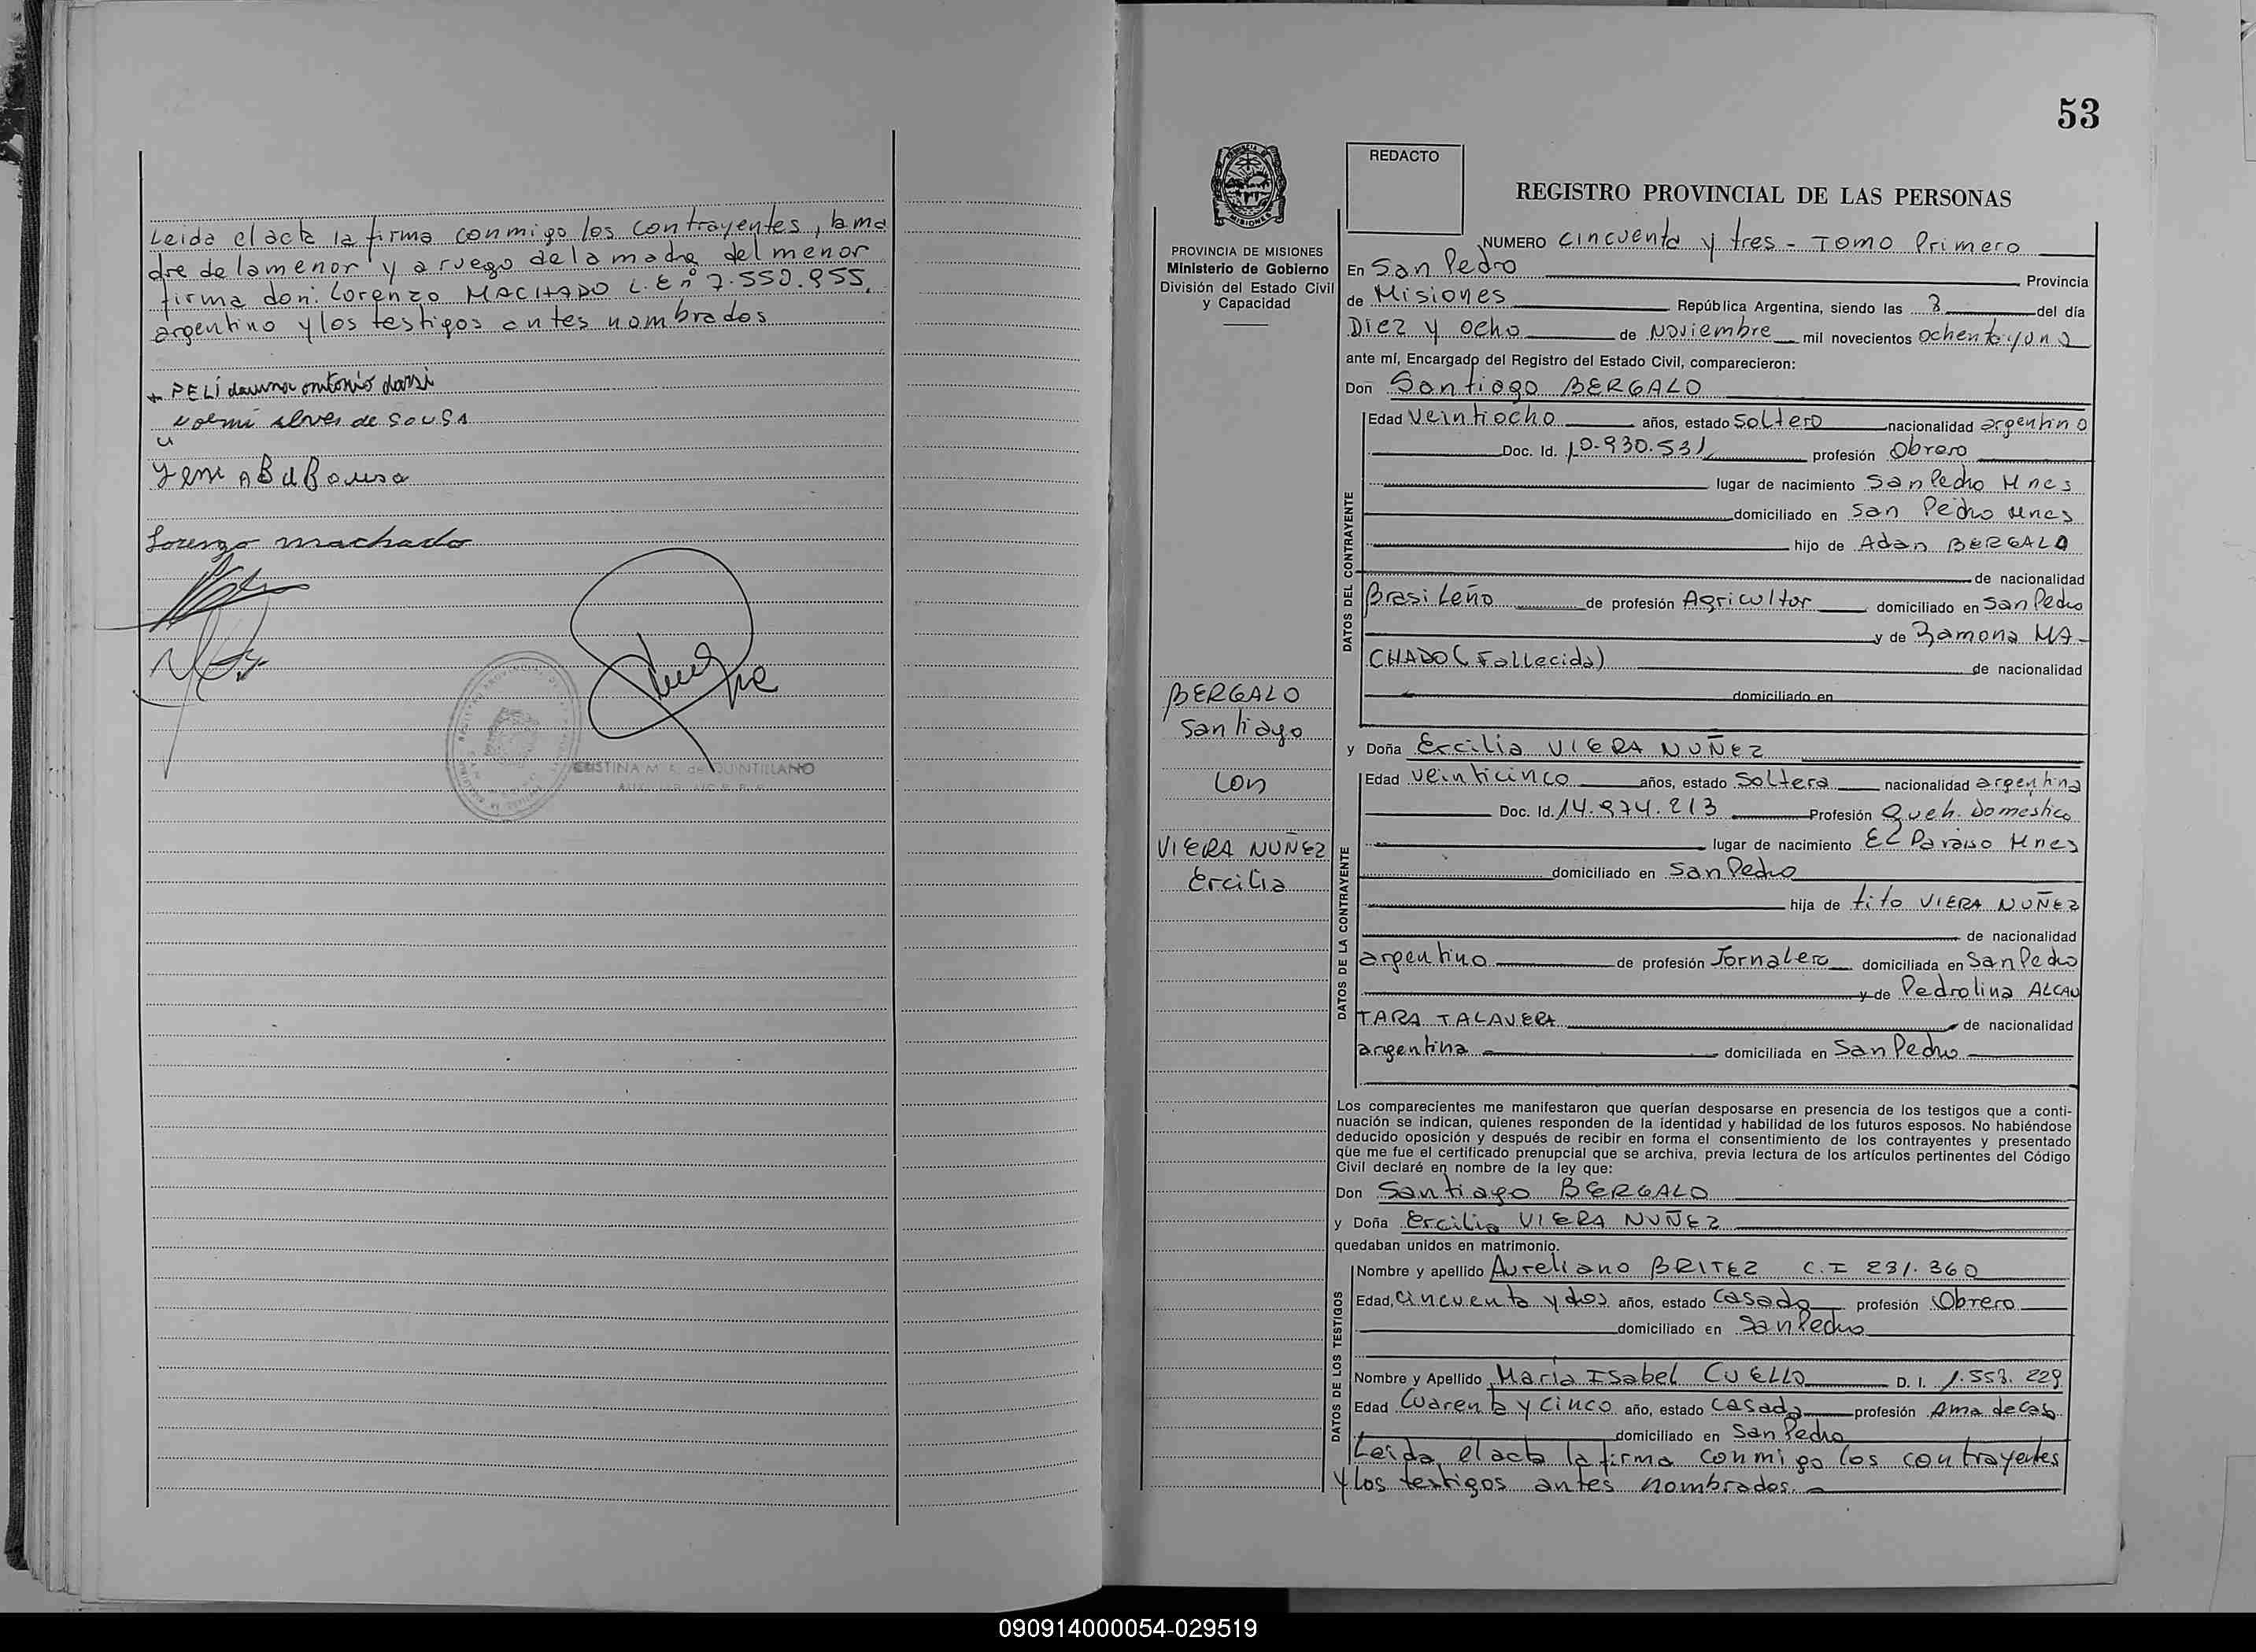 Leida el acta la firma conmigo los contrayentes, la ma
dre de la menor y a ruego de la madre del menor
firma don: Lorenzo MACHADO L.E nº 7.550.855,
argentino y los testigos antes nombrados
Lorenzo machado
CRISTINA M. A. de QUINTILLANO
53
REDACTO
REGISTRO PROVINCIAL DE LAS PERSONAS
PROVINCIA DE MISIONES
Ministerio de Gobierno
División del Estado Civil
y Capacidad
NUMERO Cincuenta y tres - Tomo Primero
En San Pedro Provincia
de Misiones República Argentina, siendo las 8 del día
Diez y ocho de Noviembre mil novecientos ochenta y uno
ante mí, Encargado del Registro del Estado Civil, comparecieron:
Don Santiago BERGALO
DATOS DEL CONTRAYENTE
Edad Veintiocho años, estado Soltero nacionalidad argentino
Doc. Id. 10.930.531 profesión Obrero
lugar de nacimiento San Pedro Mnes
domiciliado en San Pedro Mnes
hijo de Adan BERGALO
de nacionalidad
Brasileño de profesión Agricultor domiciliado en San Pedro
y de Ramona MA-
CHADO (Fallecida) de nacionalidad
domiciliado en
BERGALO
Santiago
con
VIERA NUÑEZ
Ercilia
y Doña Ercilia VIERA NUÑEZ
DATOS DE LA CONTRAYENTE
Edad veinticinco años, estado Soltera nacionalidad argentina
Doc. Id. 14.974.213 Profesión Queh. Domestico
lugar de nacimiento El Paraiso Mnes
domiciliado en San Pedro
hija de tito VIERA NUÑEZ
de nacionalidad
argentino de profesión Jornalero domiciliada en San Pedro
y de Pedrolina ALCAN
TARA TALAVERA de nacionalidad
argentina domiciliada en San Pedro
Los comparecientes me manifestaron que querían desposarse en presencia de los testigos que a conti-
nuación se indican, quienes responden de la identidad y habilidad de los futuros esposos. No habiéndose
deducido oposición y después de recibir en forma el consentimiento de los contrayentes y presentado
que me fue el certificado prenupcial que se archiva, previa lectura de los artículos pertinentes del Código
Civil declaré en nombre de la ley que:
Don Santiago BERGALO
y Doña Ercilia VIERA NUÑEZ
quedaban unidos en matrimonio.
DATOS DE LOS TESTIGOS
Nombre y apellido Aureliano BRITEZ C.I 231.360
Edad, cincuenta y dos años, estado Casado profesión Obrero
domiciliado en San Pedro
Nombre y Apellido Maria Isabel CUELLO D. I. 1.553.229
Edad Cuarenta y Cinco año, estado Casada profesión Ama de Casa
domiciliado en San Pedro
Leida el acta la firma conmigo los contrayentes
y los testigos antes nombrados.
090914000054-029519